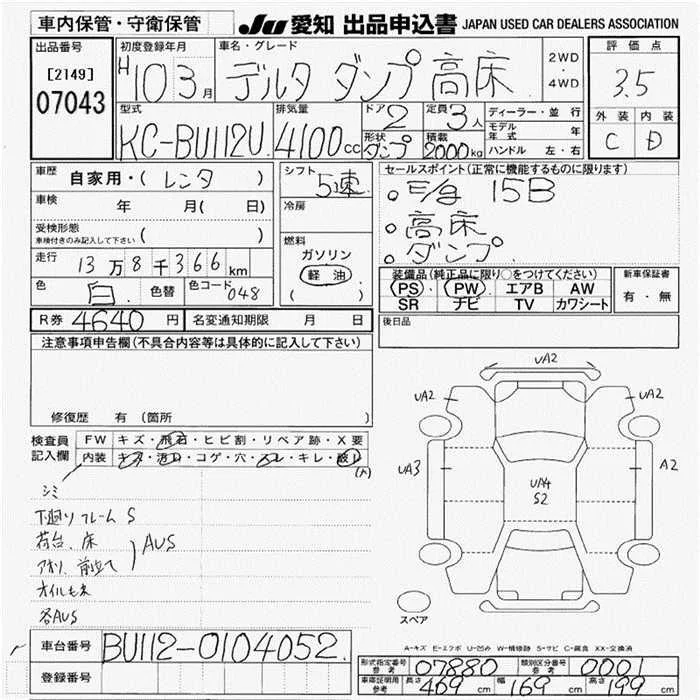 車内保管・守衛保管
JU 愛知 出品申込書 JAPAN USED CAR DEALERS ASSOCIATION
出品番号
[2149]
07043
初度登録年月
H10 3月
車名・グレード
デルタ ダンプ 高床
2WD
・
4WD
評価点
3.5
外装 内装
C D
型式
KC-BU112U
排気量
4100cc
ドア
2
形状
ダンプ
定員
3人
積載
2000kg
ディーラー・並行
モデル年式 年
ハンドル 左・右
車歴
自家用・( レンタ )
車検 年 月( 日)
受検形態
車検付きのみ記入して下さい ( )
走行 13万8千366km
色 白 色替 色コード 048
シフト
5速
冷房
燃料
ガソリン
軽油
( )
セールスポイント(正常に機能するものに限ります)
15B
高床
ダンプ
装備品(純正品に限り○をつけてください)
PS PW エアB AW
SR ナビ TV カワシート
新車保証書
有・無
R券 4640 円
名変通知期限 月 日
後日品
注意事項申告欄(不具合内容等は具体的に記入して下さい)
修復歴 有 (箇所 )
検査員記入欄
FW キズ・飛石・ヒビ割・リペア跡・X要
内装 キズ・汚れ・コゲ・穴・スレ・キレ・破レ
シミ
下廻りフレームS
荷台、床
アオリ、前立て
AUS
オイルもれ
各AUS
UA2
UA2
UA2
UA3
A2
UA4
S2
スペア
A-キズ E-エクボ U-凹み W-補修跡 S-サビ C-腐食 XX-交換済
車台番号 BU112-0104052
登録番号
型式指定番号 参考 07880
類別区分番号 参考 0001
車庫証明用 参考 長さ 469cm 幅 169cm 高さ 199cm